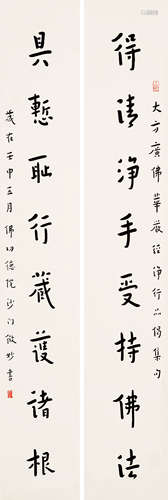 大方廣佛華嚴經淨行品偈集句
得清淨手受持佛法
具慙耻行藏護諸根
歲在壬申三月佛
沙門
書